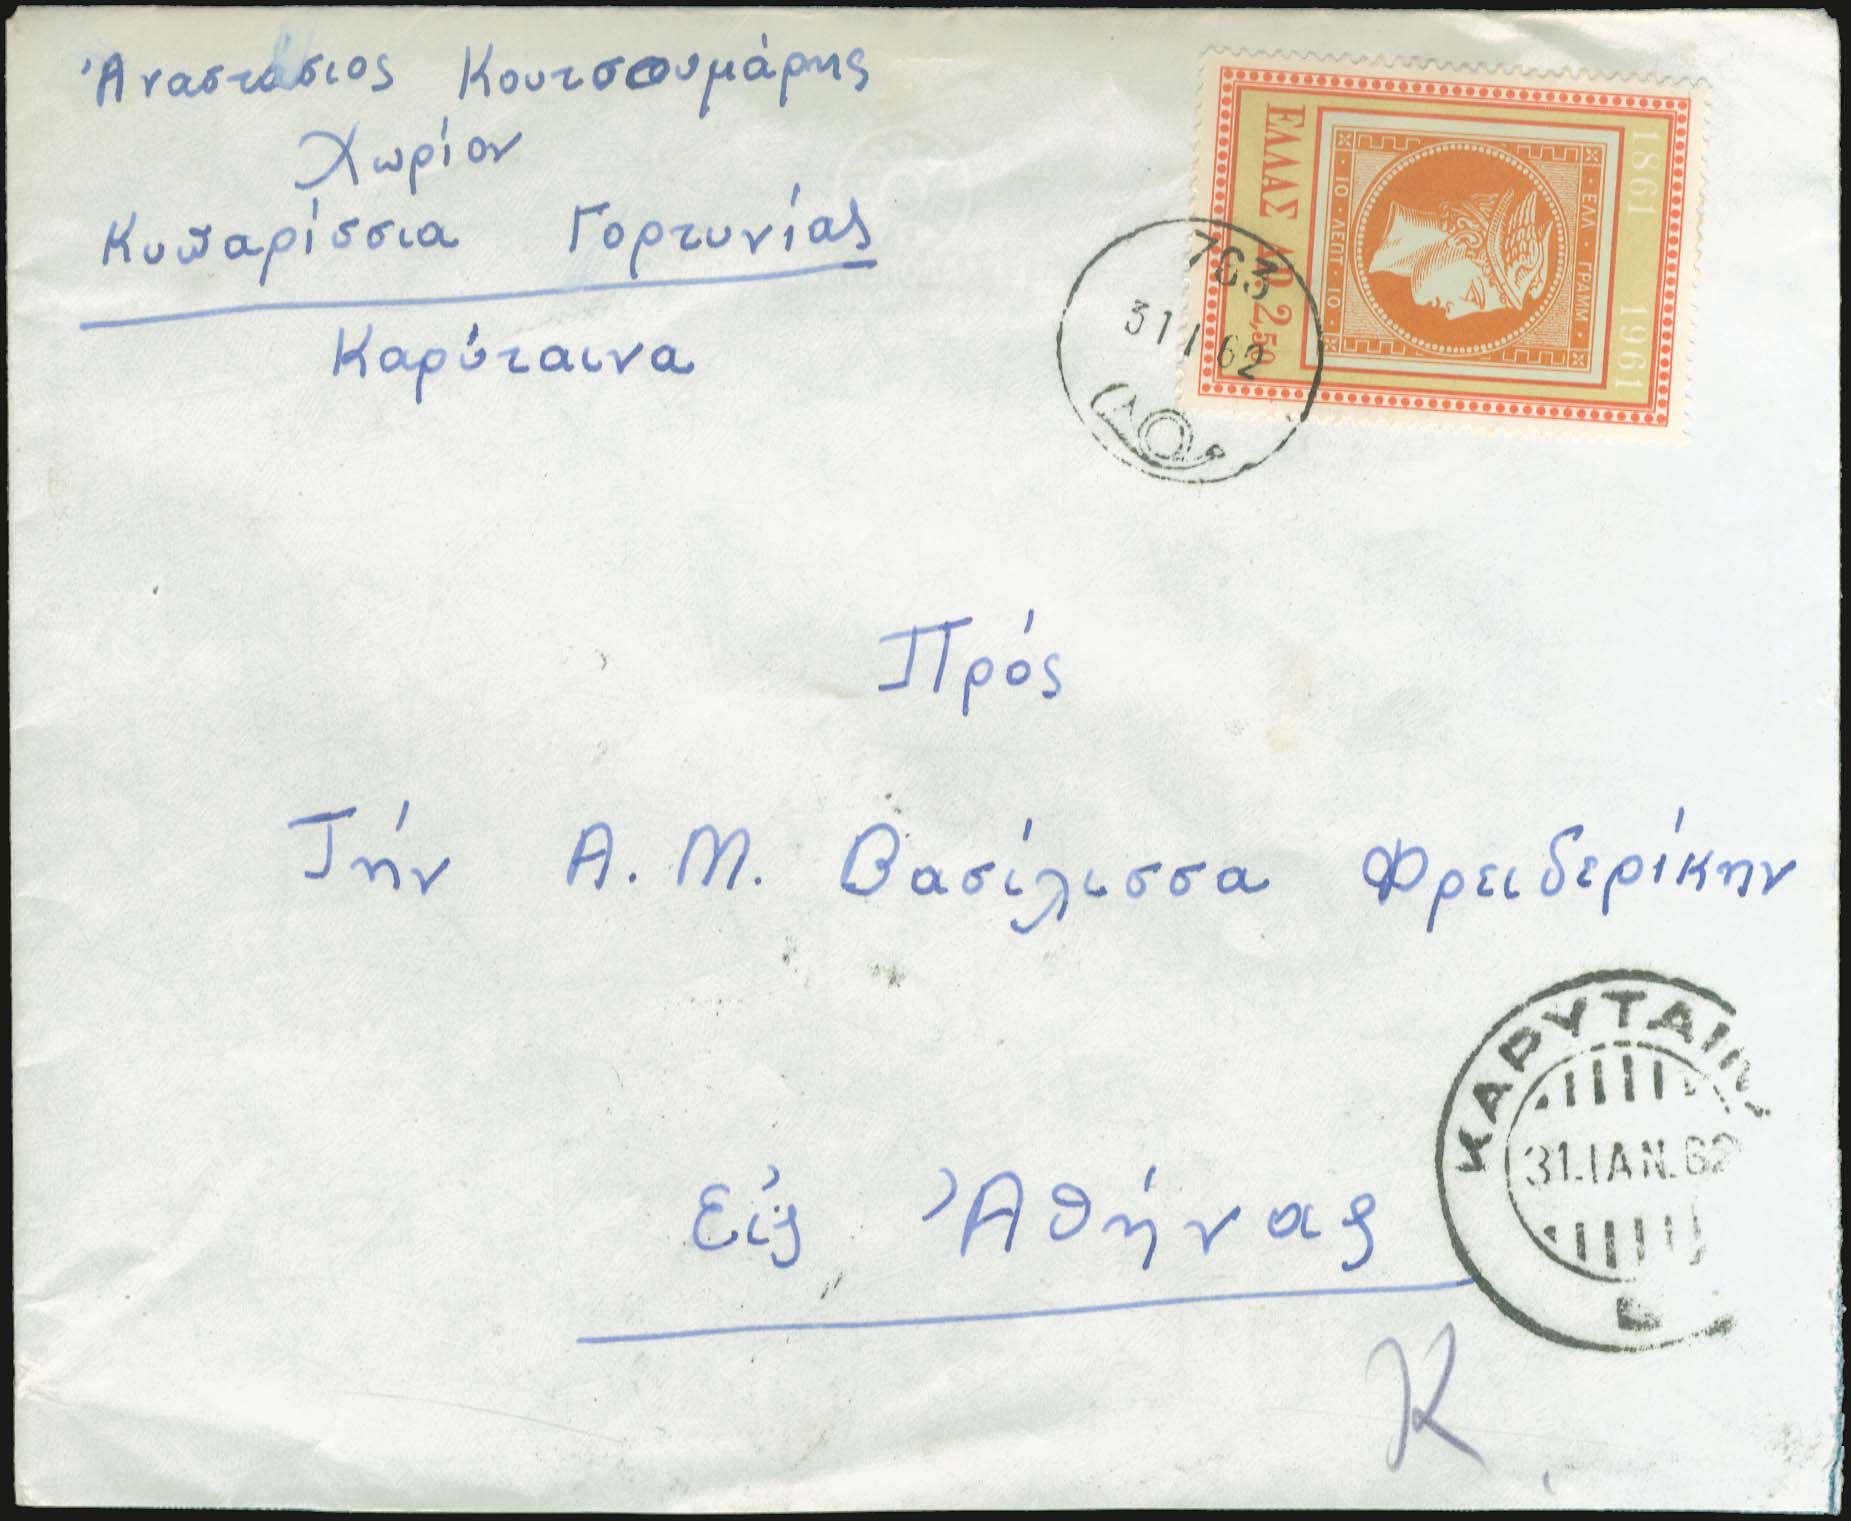 Ἀναστάσιος Κουτσουμάρης
Χωρίον
Κυπαρίσσια Γορτυνίας
Καρύταινα
1861 1961
ΕΛΛ · ΓΡΑΜΜ
10 · ΛΕΠΤ · 10
ΕΛΛΑΣ ΔΡ 2,50
763
31 1 62
Πρός
Τήν Α. Μ. Βασίλισσα Φρειδερίκην
Εἰς Ἀθήνας
ΚΑΡΥΤΑΙΝ
31.ΙΑΝ.62
Κ